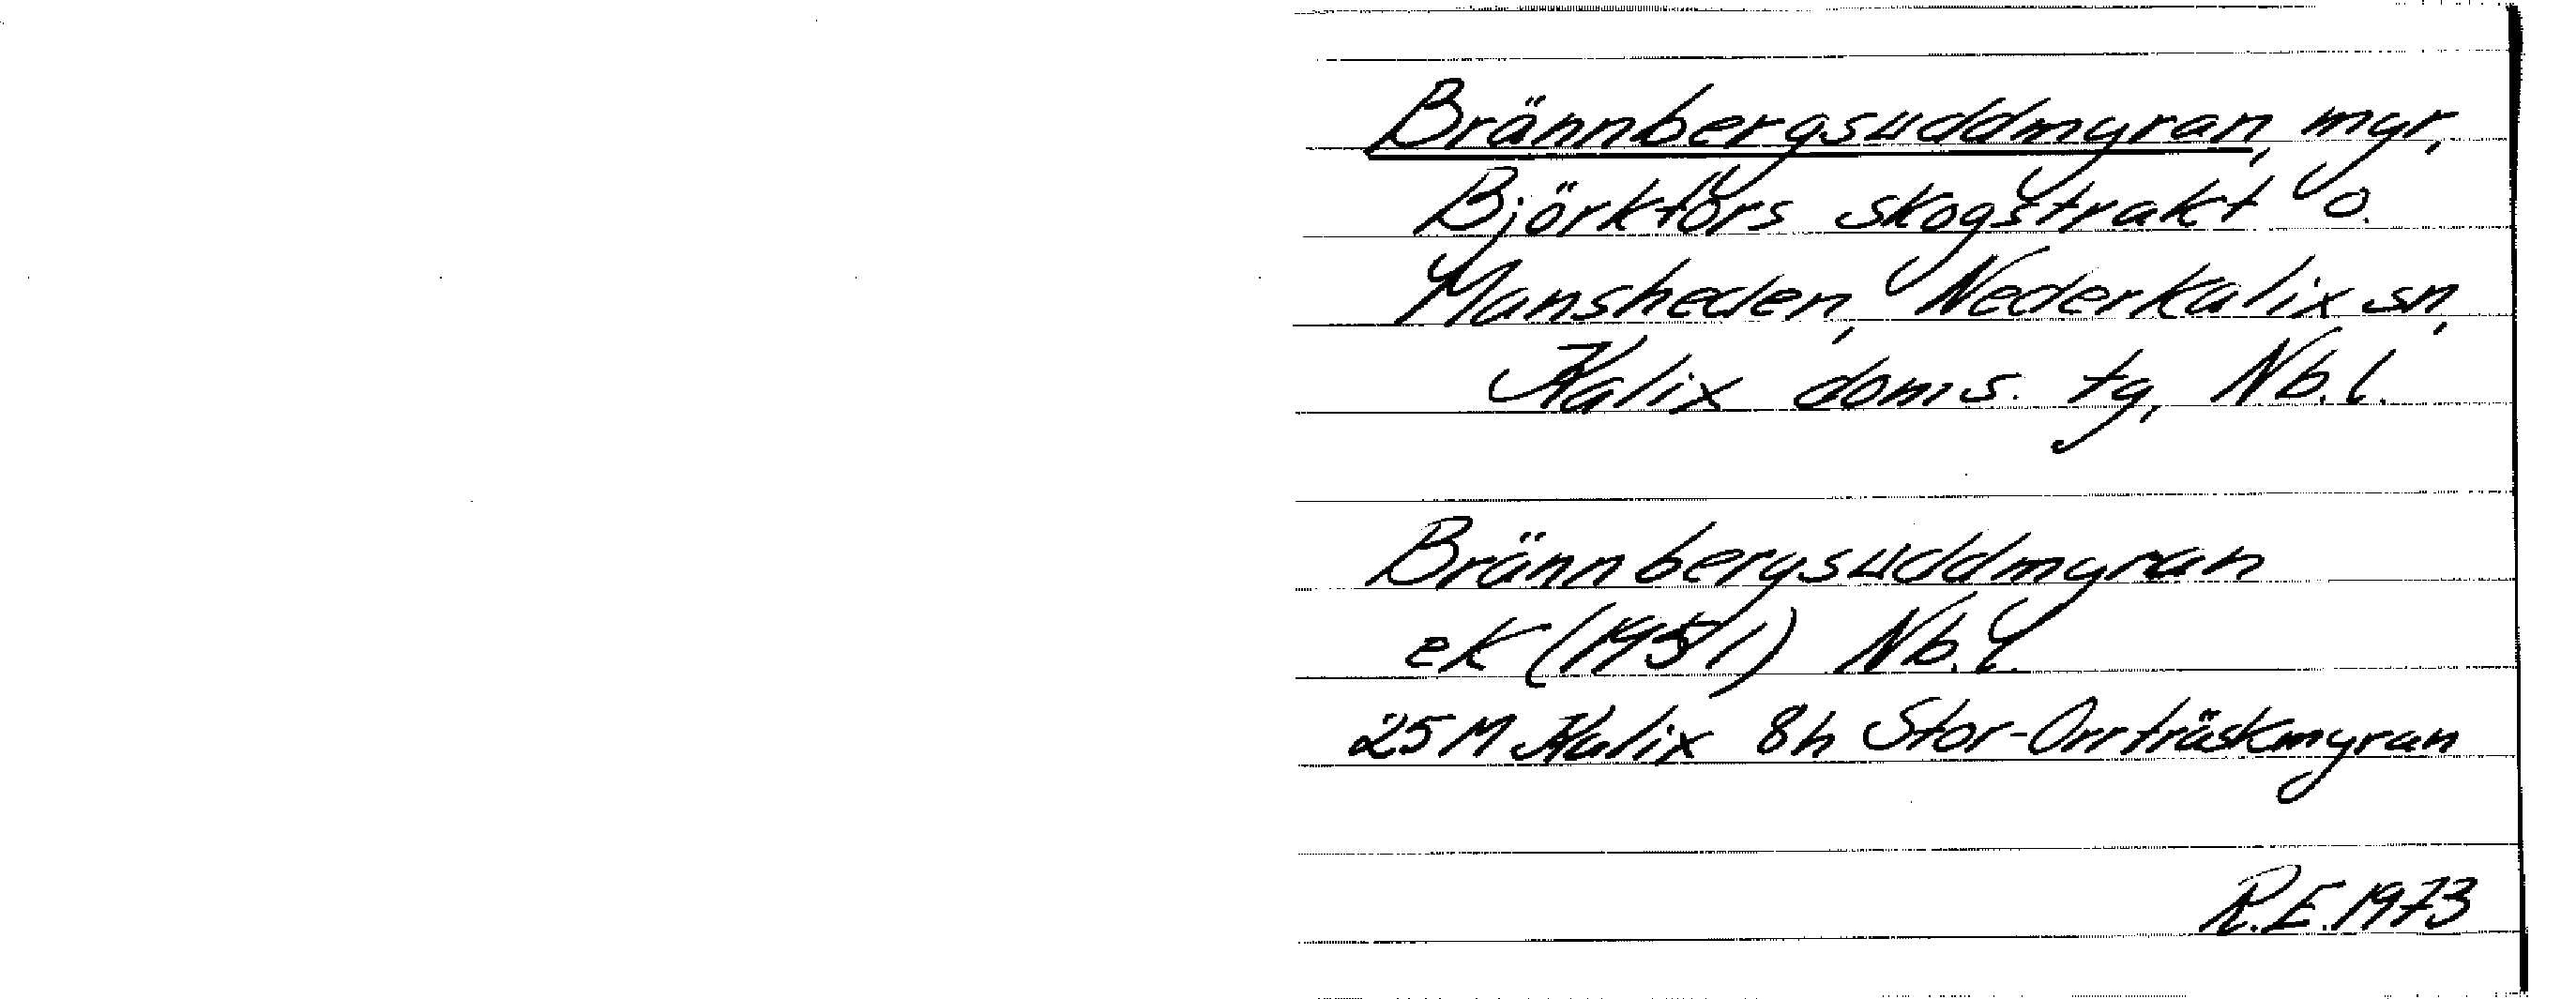 Brännbergsuddmyran, myr,
Björkfors skogstrakt o.
Mansheden, Nederkalix sn,
Kalix doms. tg, Nb.l.
Brännbergsuddmyran
ek (1951) Nb.l.
25 M Kalix 8h Stor-Orrträskmyran
R.E. 1973